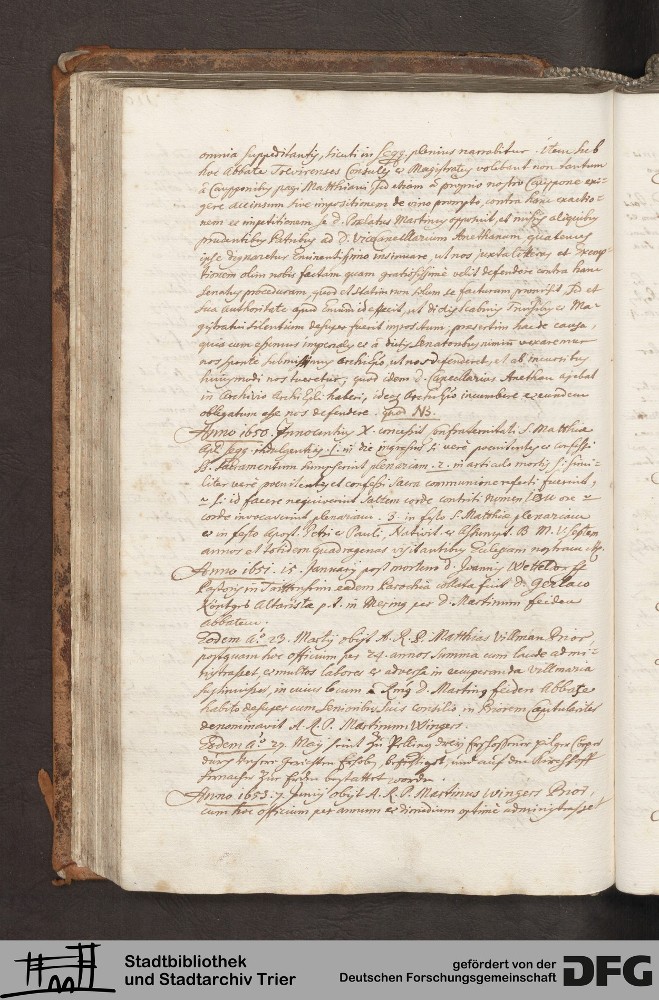 omnia suppeditantis, sicuti in seqq. plenius narrabitur. item sub
hoc Abbate Trevirenses Consules et Magistratus volebant non tantum
à Cauponibus pagi Matthiani sed etiam à proprio nostro Caupone exi=
gere accinsum sive impositionem de vino prompto, contra hanc exactio=
nem et impetitionem se d. Praelatus Martinus opposuit, et missis aliquibus
prudentibus Patribus ad D. Vicecancellarium Anethanum quatenus
ipse dignaretur Eminentissimo insinuare, ut nos juxta litteras et exemp=
tionem olim nobis factam quam gratiosissime velit defendere contra hanc
senatus proceduram, quod et statim non solum se facturum promisit, sed et
sua authoritate apud Eminm id effecit, ut dictis Scabinis Consulibus et Ma=
gistratui silentium desuper fuerit impositum, praesertim hac de causa,
quia cum essemus imperiales et à dictis Senatoribus nimium vexaremur
nos sponte submisimus Archiepo, ut nos defenderet, et ab incursibus
huiusmodi nos tueretur, quod idem d. Cancellarius Anethan ajebat
in Archivio Archiepli haberi, ideoq Archiepo incumbere et eundem
obligatum esse nos defendere. quod NB.
Anno 1650. Innocentius X. concessit confraternitati S. Matthiae
Apli seqq. indulgentias .1. in die ingressus si verè poenitentes et confessi
SS. Sacramentum sumpserint plenariam .2. in articulo mortis si simi=
liter verè poenitentes et confessi sacra communione refecti fuerint,
v si id facere nequiverint saltem corde contriti nomen IESU ore v
corde invocaverint plenariam .3. in festo S. Matthiae plenariam
et in festo Apost. Petri et Pauli, Nativit. et Assumpt. B. M. V. septem
annos et totidem quadragenas visitantibus Ecclesiam nostram
Anno 1651. 15. Januarij post mortem d. Joannis Wetteldorff
Pastoris in Trittenheim eadem Parochia collata fuit D. Gerlaco
Altarista p. t. in Mering per d. Martinum feiden
abbatem.
Eodem a.o 23. Martij obijt A. R. P. Matthias Villman Prior,
postquam hoc officium per 24. annos summa cum laude admi=
nistrasset, et multos labores et adversa in recuperanda villmaria
sustinuisset, in cuius locum Rmus D. Martinus feiden Abbas
habito desuper cum Senioribus suis consilio in Priorem Capitulariter
denominavit A. R. P. Martinum Wingers.
Eodem a.o 27. Maij seint zu Pölling drey erschossener pilger Corper
durch unsere gerichten erhoben, besichtiget, und auf den Kirchhoff
hernacher zur Erden bestattet worden.
Anno 1653. 7. Junij obijt A. R. P. Martinus Wingers Prior,
cum hoc officium per annum et dimidium optimè administrasset
Stadtbibliothek
und Stadtarchiv Trier
gefördert von der
Deutschen Forschungsgemeinschaft
DFG